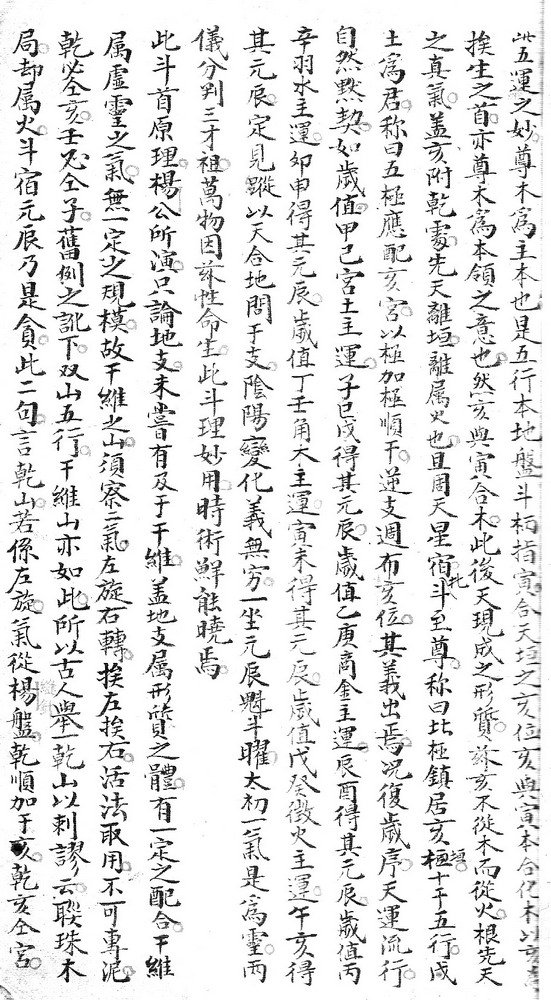 此五運之妙尊木為主木也是五行本地盤斗柄指寅合天垣之亥位亥與寅本合化木以亥
挨生之首亦尊木為本領之意也然亥與寅合木此後天現成之形質茲亥不從木而從火根先天
之真氣蓋亥附乾處先天離垣離属火也且周天星宿斗至尊称曰北極鎮居亥垣十干五行戊
土為君称曰五極應配亥宮以極加極順干逆支週布亥位其義出焉况復歲序天運流行
自然黙契如歲值甲己宮土主運子巳戌得其元辰歲值乙庚商金主運辰酉得其元辰歲值丙
辛羽水主運卯申得其元辰歲值丁壬角木主運寅未得其元辰歲值戊癸徵火主運午亥得
其元辰定見蹤以天合地問于支陰陽變化義無窮一坐元辰魁斗曜太初一氣是為靈两
儀分判三才祖萬物因玆性命生此斗理妙用時術鮮能曉焉
此斗首原理楊公所演只論地支未嘗有及于干維蓋地支属形質之體有一定之配合干維
属虛靈之氣無一定之規模故干維之山須察二氣左旋右轉挨左挨右活法取用不可專泥
乾必仝亥壬必仝子舊例之訛下双山五行干維山亦如此所以古人舉一乾山以刺謬云聫珠木
局却属火斗宿元辰乃是貪此二句言乾山若係左旋氣從楊盤乾順加于亥乾亥仝宮